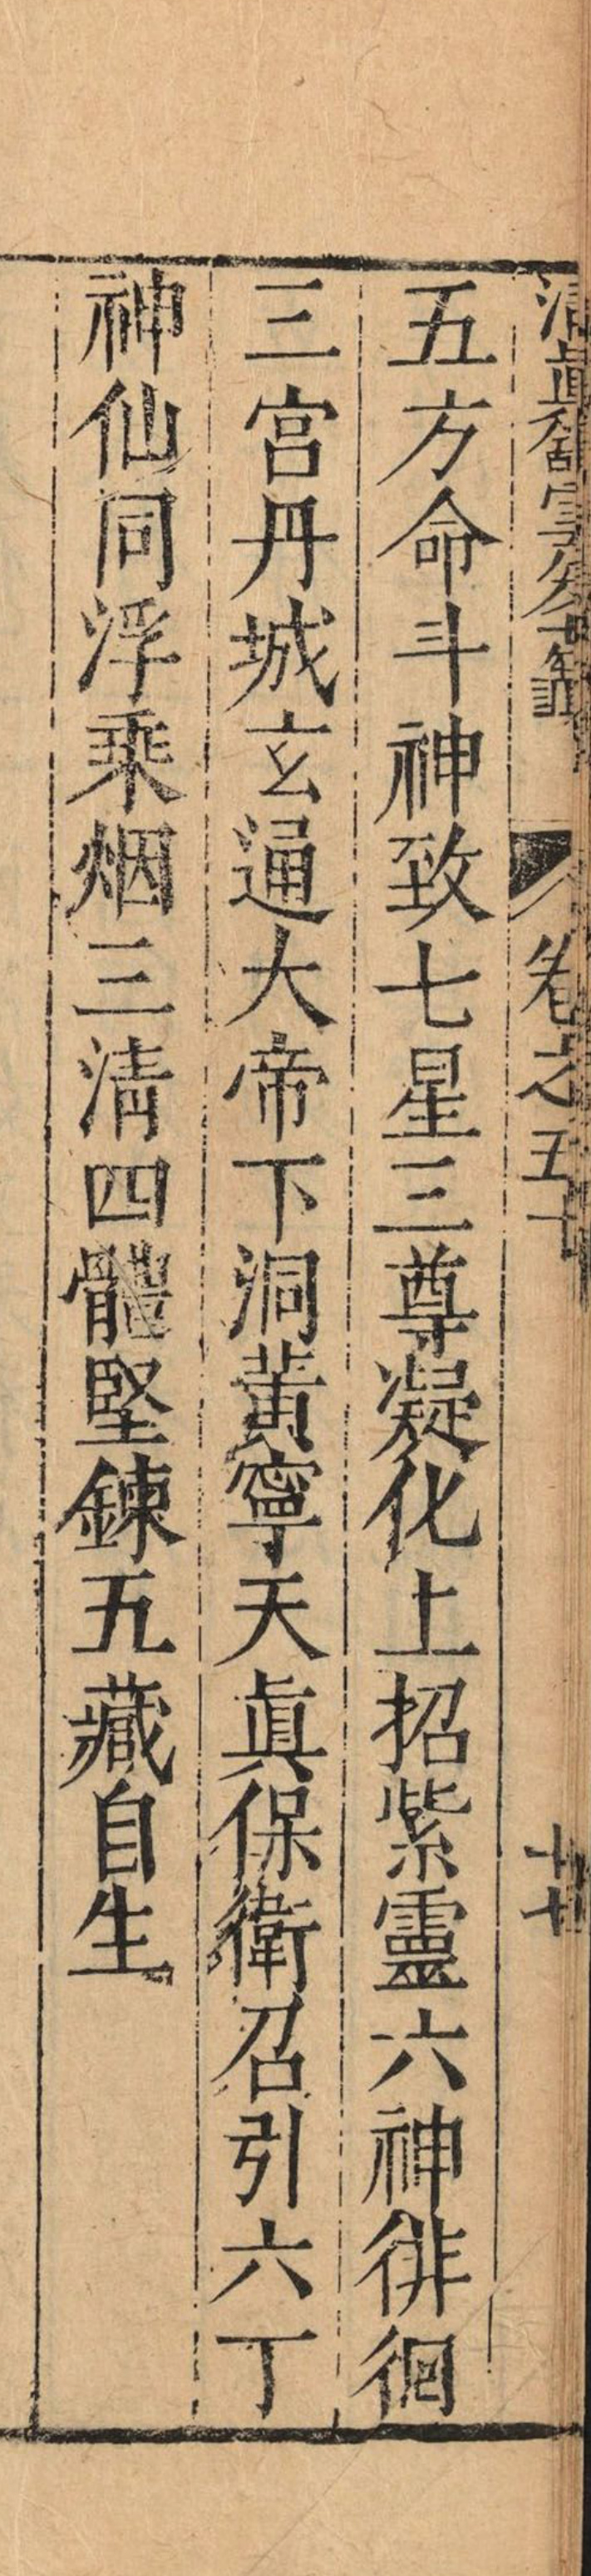 卷之五十
十七
五方命斗神致七星三尊凝化上招紫靈六神徘徊
三宮丹城玄通大帝下洞黃寧天眞保衛召引六丁
神仙同浮乘烟三清四體堅鍊五藏自生